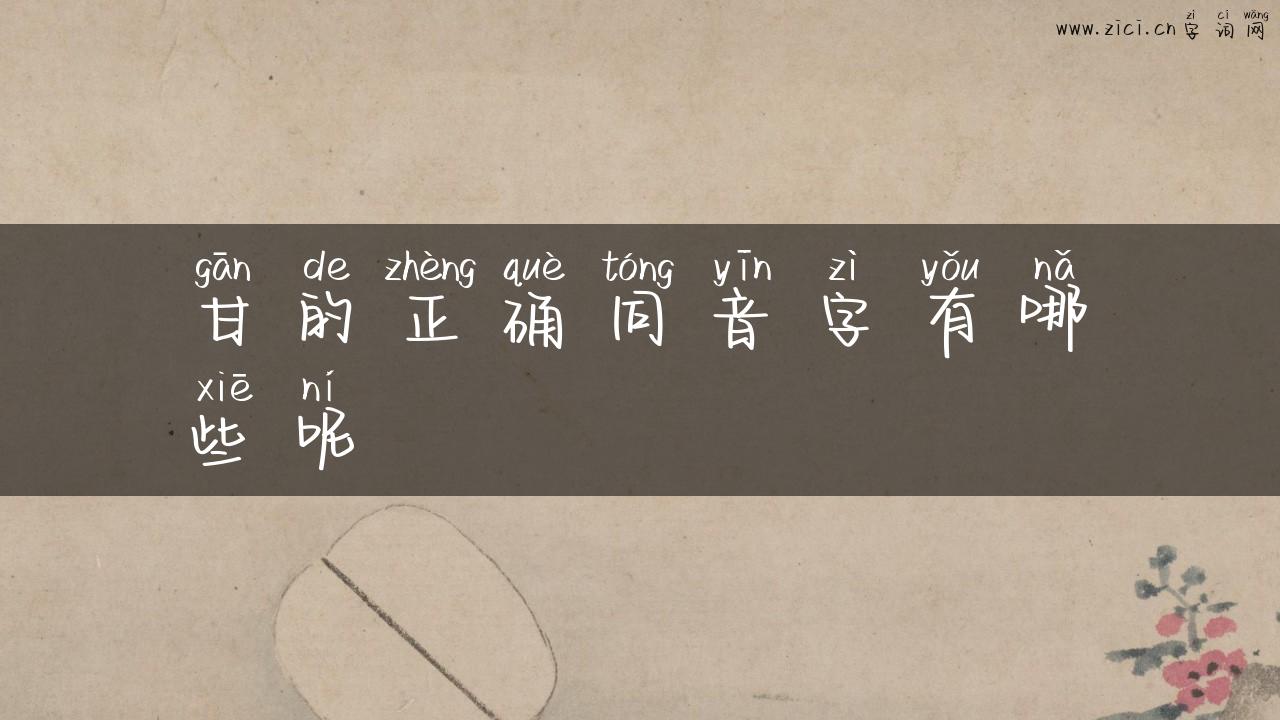 zì cí wǎng
www.zici.cn 字词网
gān de zhèng què tóng yīn zì yǒu nǎ
甘的正确同音字有哪
xiē ní
些呢